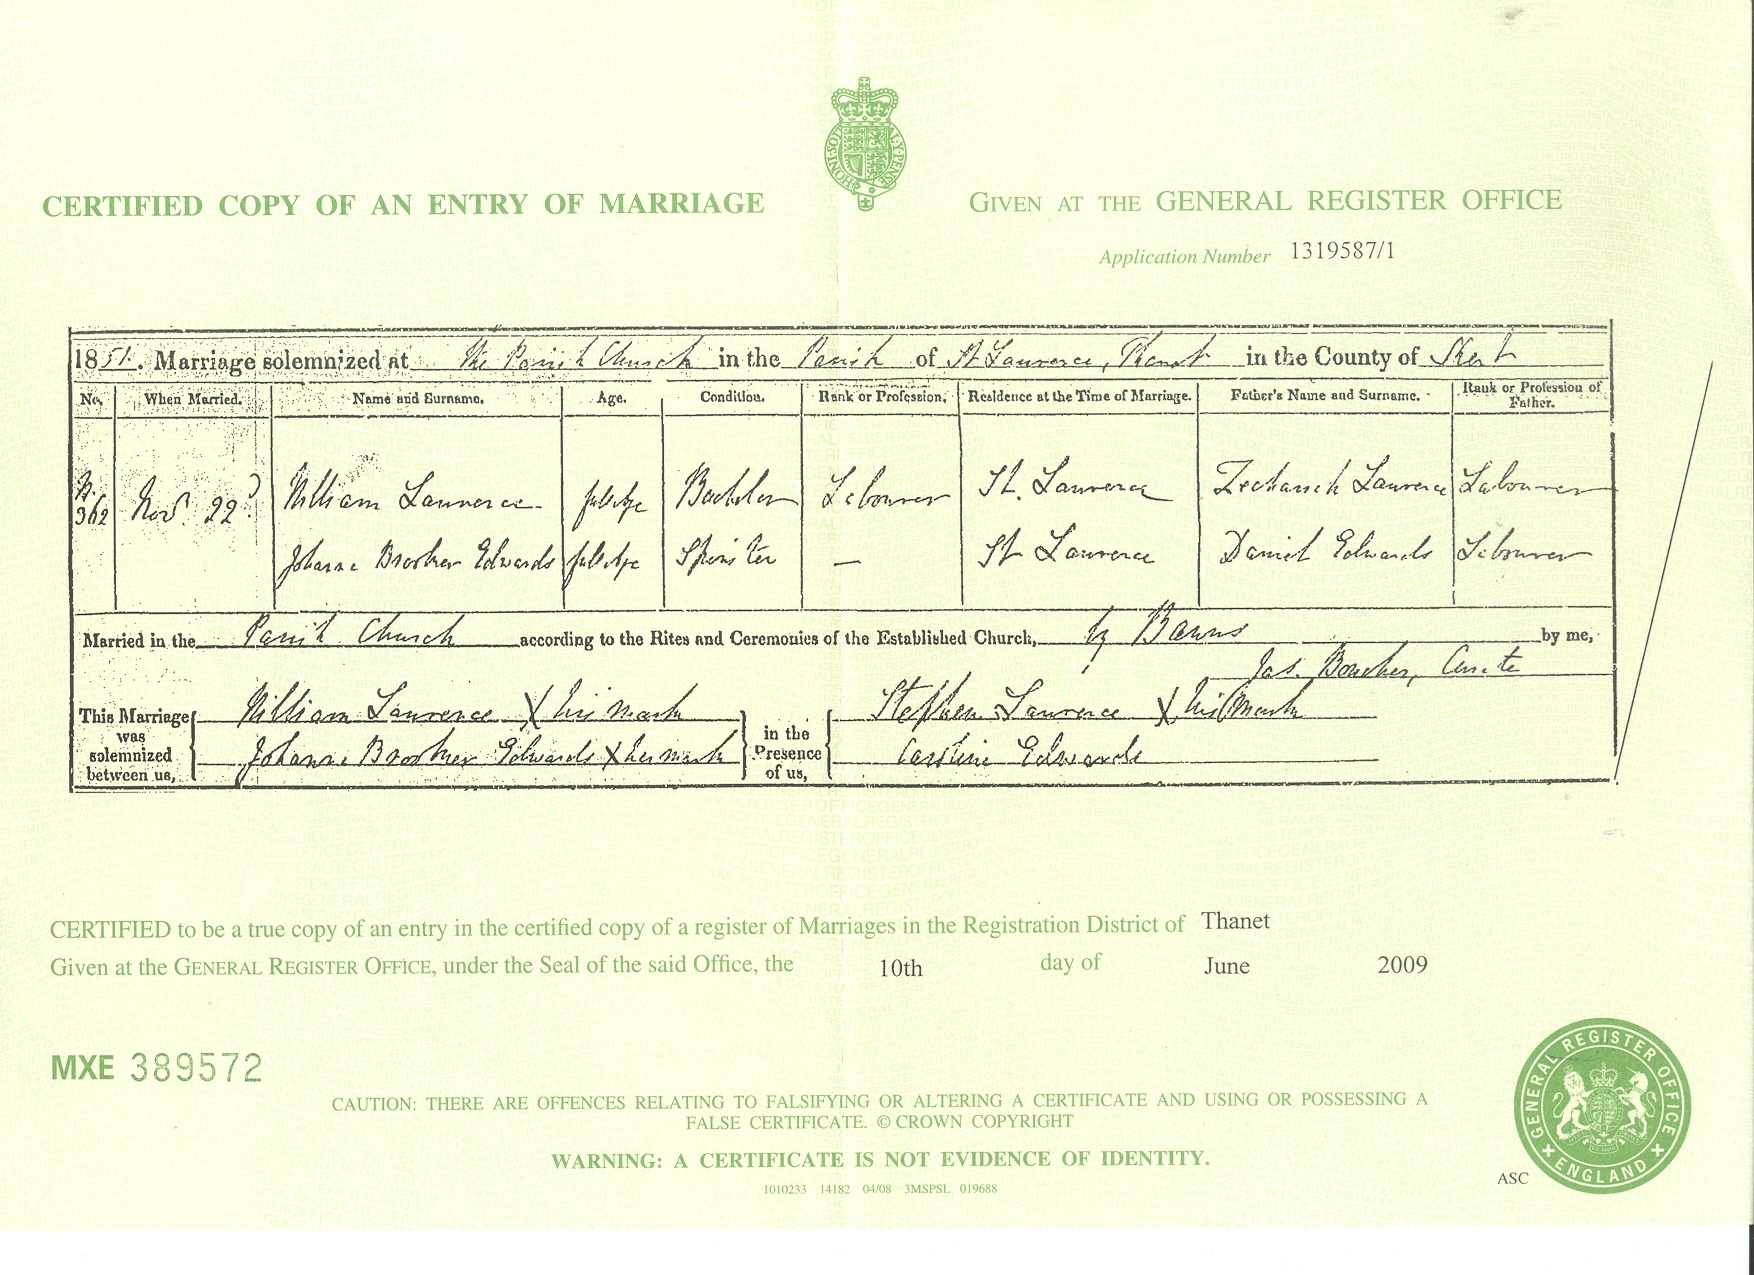 HONI·SOIT AL·Y·PENSE
CERTIFIED COPY OF AN ENTRY OF MARRIAGE
GIVEN AT THE GENERAL REGISTER OFFICE
Application Number 1319587/1
1851. Marriage solemnized at the Parish Church in the Parish of St Laurence, Thanet in the County of Kent
No. When Married. Name and Surname. Age. Condition. Rank or Profession. Residence at the Time of Marriage. Father's Name and Surname. Rank or Profession of Father.
362 Novr. 22d William Laurence full age Bachelor Labourer St. Laurence Zechariah Laurence Labourer
Johanna Brooker Edwards full age Spinster — St Laurence Daniel Edwards Labourer
Married in the Parish Church according to the Rites and Ceremonies of the Established Church, by Banns by me,
Jas. Boucher, Curate
This Marriage was solemnized between us, William Laurence X his mark in the Presence of us, Stephen Laurence X his mark
Johanna Brooker Edwards X her mark Caroline Edwards
CERTIFIED to be a true copy of an entry in the certified copy of a register of Marriages in the Registration District of Thanet
Given at the GENERAL REGISTER OFFICE, under the Seal of the said Office, the 10th day of June 2009
MXE 389572
CAUTION: THERE ARE OFFENCES RELATING TO FALSIFYING OR ALTERING A CERTIFICATE AND USING OR POSSESSING A
FALSE CERTIFICATE. © CROWN COPYRIGHT
WARNING: A CERTIFICATE IS NOT EVIDENCE OF IDENTITY.
1010233 14182 04/08 3MSPSL 019688
ASC
GENERAL REGISTER OFFICE
ENGLAND